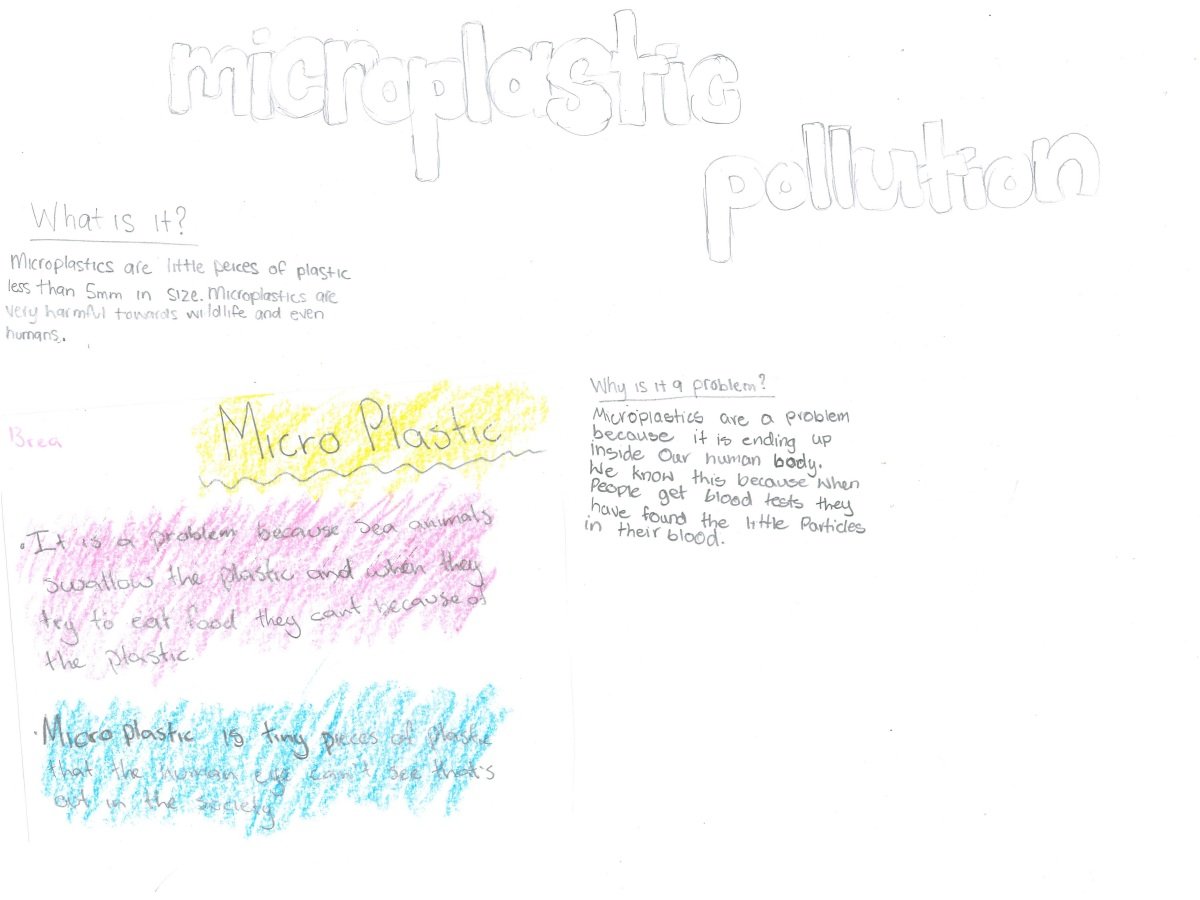 microplastic
pollution
What is it?
Microplastics are little peices of plastic
less than 5mm in size. Microplastics are
very harmful towards wildlife and even
humans.
Why is it a problem?
Microplastics are a problem
because it is ending up
inside our human body.
We know this because when
People get blood tests they
have found the little Particles
in their blood.
Brea
Micro Plastic
• It is a problem because sea animals
swallow the plastic and when they
try to eat food they cant because of
the plastic.
• Micro plastic is tiny pieces of plastic
that the human eye can't see that's
out in the society